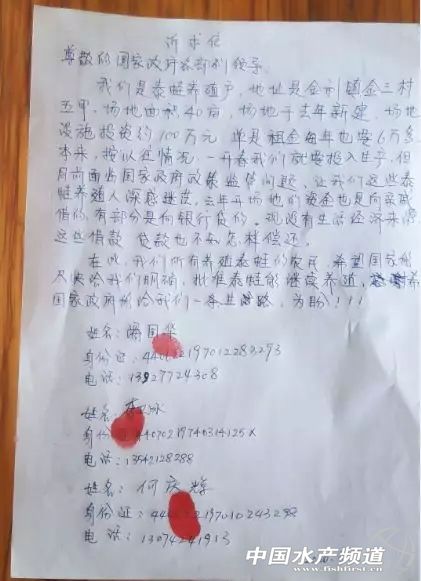 诉求信
尊敬的国家政府各部门领导:
我们是泰蛙养殖户,地址是金利镇金三村
五甲,场地面积40亩,场地于去年新建,场地
设施投资约100万元,单是租金每年也要6万多,
本来,按以往情况,一开春我们就要投入生产,但
目前面临国家政府政策监管问题,让我们这些泰
蛙养殖人深感迷茫,去年开场地的资金也是向亲戚
借的,有部分是向银行贷的。现没有生活经济来源
这些借款、贷款也不知怎样偿还。
在此,我们所有养殖泰蛙的农民,希望国家能
尽快给我们明确,批准泰蛙能继续养殖,
国家政府能给我们一条生路,为盼!!!
姓名:
身份证:
电话:13927724308
姓名:
身份证:
电话:13542128288
姓名:何庆辉
身份证:
电话:13074241913
中国水产频道
www.fishfirst.cn